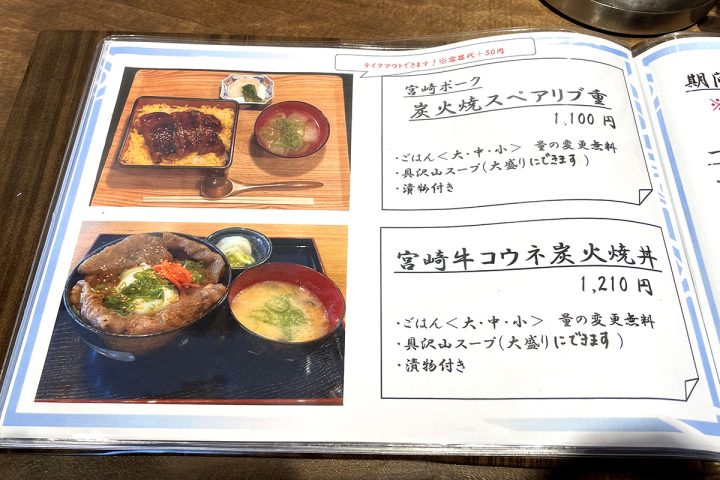 テイクアウトできます！※容器代＋50円
宮崎ポーク
炭火焼スペアリブ重
1,100 円
・ごはん＜大・中・小＞ 量の変更無料
・具沢山スープ(大盛りにできます)
・漬物付き
宮崎牛コウネ炭火焼丼
1,210 円
・ごはん＜大・中・小＞ 量の変更無料
・具沢山スープ(大盛りにできます)
・漬物付き
期間
※